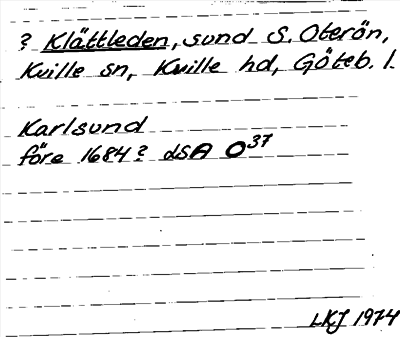 ? Klättleden, sund S. Oterön,
Kville sn, Kville hd, Göteb. l.
Karlsund
före 1684? dSA O37
LKJ 1974